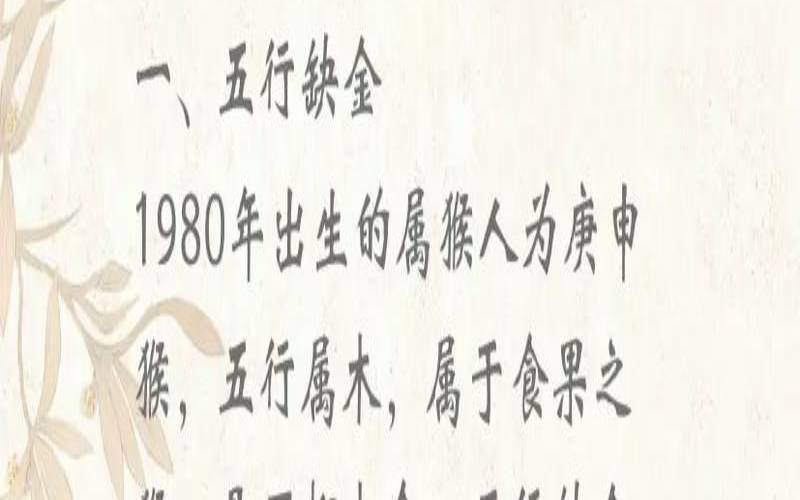 一、五行缺金
1980年出生的属猴人为庚申
猴，五行属木，属于食果之